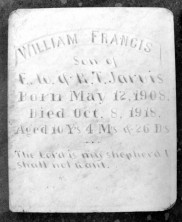 WILLIAM FRANCIS
Son of
E. W. & B. T. Jarvis
Born May 12, 1908,
Died Oct. 8, 1918,
Aged 10 Ys 4 Ms & 26 Ds
The Lord is my shepherd I
shall not want.